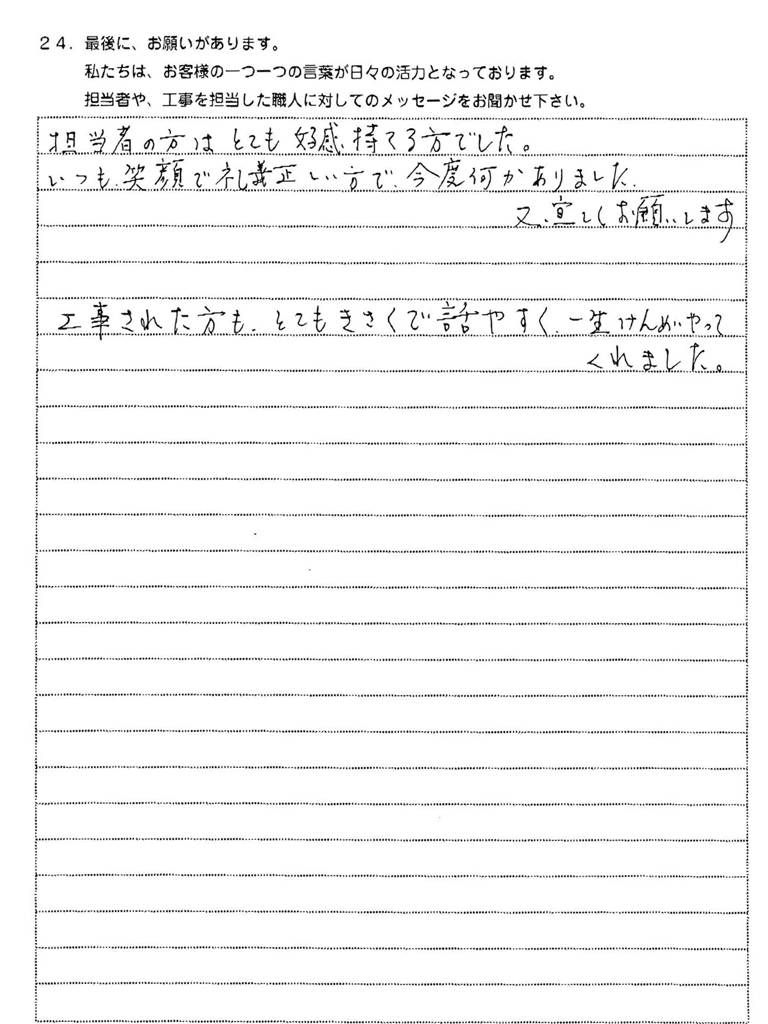 24. 最後に、お願いがあります。
私たちは、お客様の一つ一つの言葉が日々の活力となっております。
担当者や、工事を担当した職人に対してのメッセージをお聞かせ下さい。
担当者の方は とても 好感持てる方でした。
いつも、笑顔で礼義正しい方で、今度何かありました、
又、宜しくお願いします
工事された方も、とてもきさくで話やすく、一生けんめいやって
くれました。